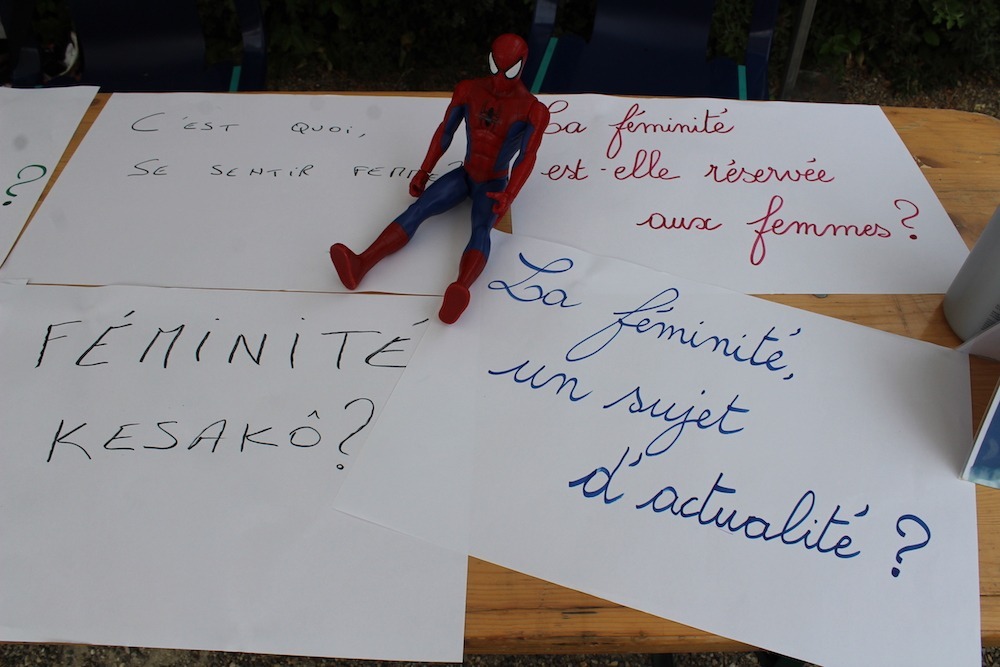 ?
C'EST QUOI,
SE SENTIR FEMME?
La féminité
est-elle réservée
aux femmes?
FÉMINITÉ
KESAKÔ?
La féminité,
un sujet
d'actualité?